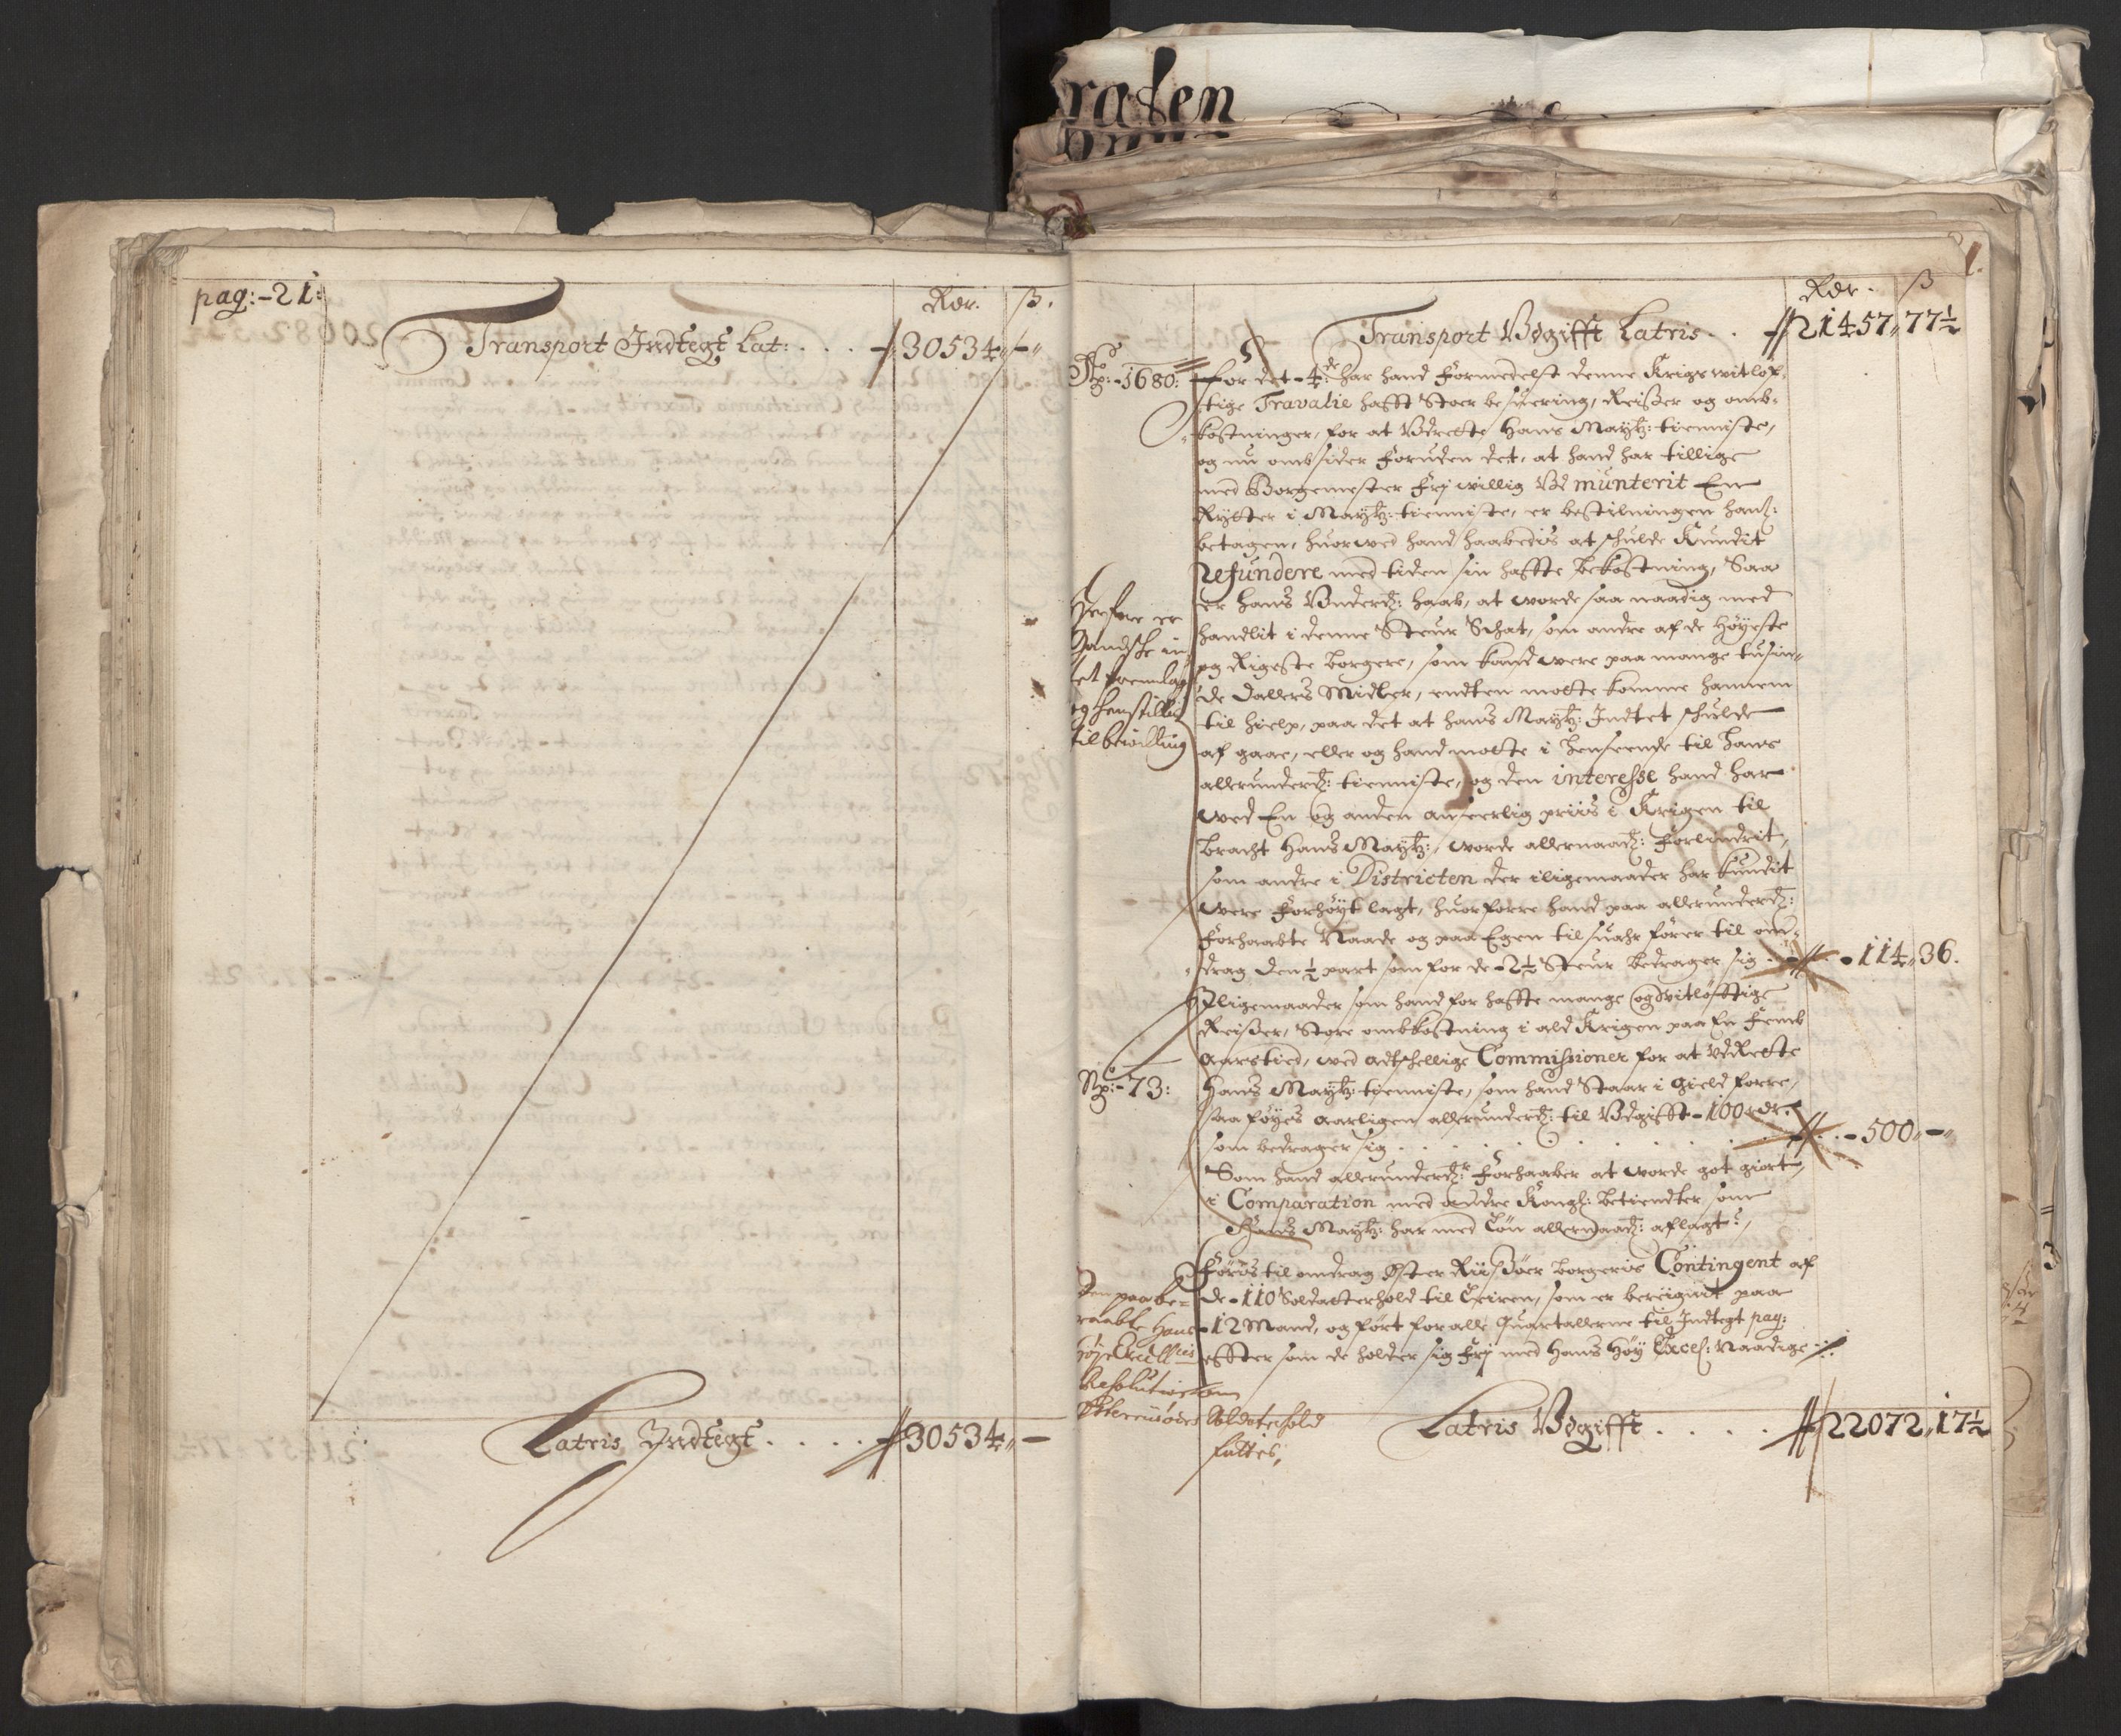 raten
pag:-21:
Rdr. ß.
Transport Indtegt Lat: . . . 30534 „ -„
Latris Indtegt . . . . 30534 „ -
1.
Rdr. ß
Transport Vdgifft Latris . . 21457 „ 77½
Ao -1680:
for det -4de har hand formedelst denne Krigs witløf-
tige Travalie hafft Stoer besvering, Reiser og omb-
kostninger, for at Vdrette Hans Mayts: tienniste,
og nu ombsider foruden det, at hand har tillige
med Borgemester frj willig Vd munterit En
Rytter i Mayts: tienniste, er bestilningen hans:
betagen, huorwed hand haabedis at schulde Kundit
refundere med tiden sin haffte bekostning, Saa
er hans Vnderd: haab, at worde saa naadig med
handlit i denne Steur Schat, som andre af de Høyeste
og Rigeste borgere, som kand were paa mange tusin-
de dallers Midler, endten motte komme hannem
til hielp, paa det at hans Mayts: Indtet schulde
af gaae, eller og hand motte i henseende til hans
allerunderd: tienniste, og den interesse hand har
wed En og anden anseerlig priis i Krigen til
bracht Hans Mayts:, worde allernaad: forlindrit,
som andre i Districten der iligemaader har kundit
were forhøyt lagt, huorforre hand paa allerunderd:
forhaabte Naade og paa Egen tilsuahr fører til om-
drag den ½ part som for de -2½ Steur bedrager sig . - 114 „ 36.
Herfore er
Gandske in
tet fremlagt
og henstillis
til bevilling
Iligemaader som hand for haffte mange og vitløfftige
Reiser, Store ombkostning i ald Krigen paa En femb
aars tied, wed adtschellige Commissioner for at VdRette
No:-73:
Hans Mayts: tienniste, som hand Staar i gield forre,
saa føyes aarligen allerunderd: til Vdgifft -100 rdr.
som bedrager sig . . . . . . . . . - 500 „ -„
Som hand allerunderd: forhaaber at worde got giort,
i Comparation med andre Kongl: betiendter, som
Hans Mayts: har med Løn allernaad: aflagt,
Føris til omdrag Øster Riisøer borgeris Contingent af
de -110 Soldatterhold til Leiren, som er bereignit paa
-12 Mand, og ført for alle Quartallerne til Indtegt pag:
effter som de holder sig frj med Hans Høy Excel: Naadige
Den paabe-
raabte Hans
Høye Excellis
Resolution om
Østerriisøers Soldaterhold
fattes,
Latris Vdgifft . . . . 22072 „ 17½